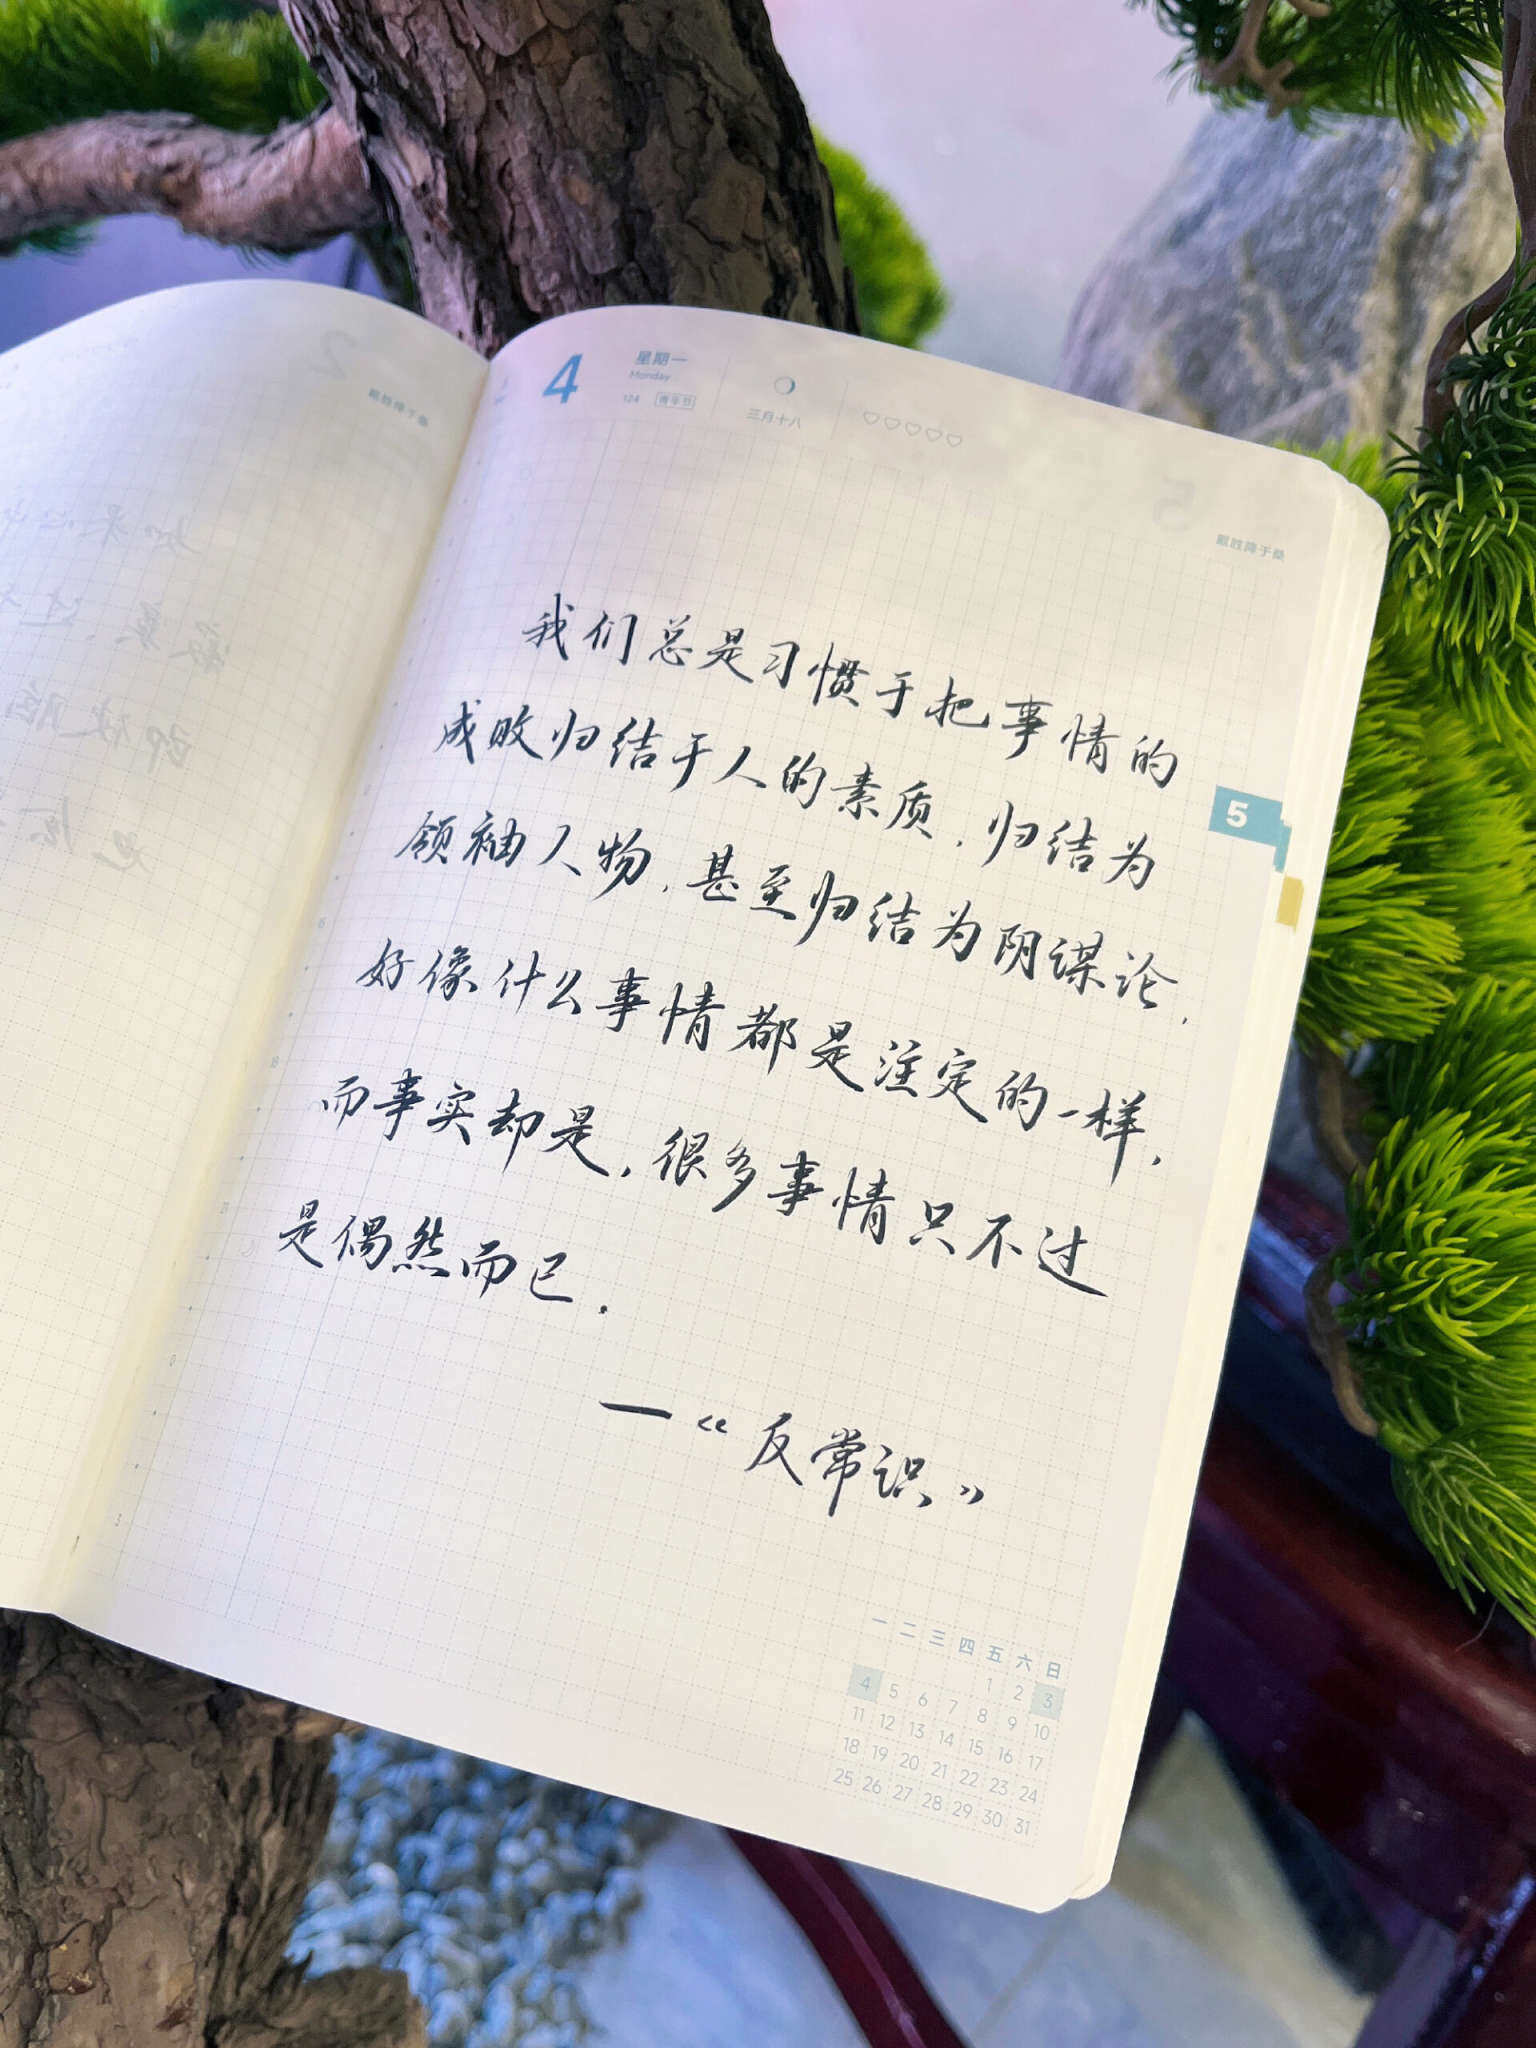 4
星期一
Monday
124 青年节
三月十八
戴胜降于桑
戴胜降于桑
我们总是习惯于把事情的
成败归结于人的素质,归结为
领袖人物,甚至归结为阴谋论,
好像什么事情都是注定的一样,
而事实却是,很多事情只不过
是偶然而已.
—《反常识》
5
一 二 三 四 五 六 日
1 2 3
4 5 6 7 8 9 10
11 12 13 14 15 16 17
18 19 20 21 22 23 24
25 26 27 28 29 30 31